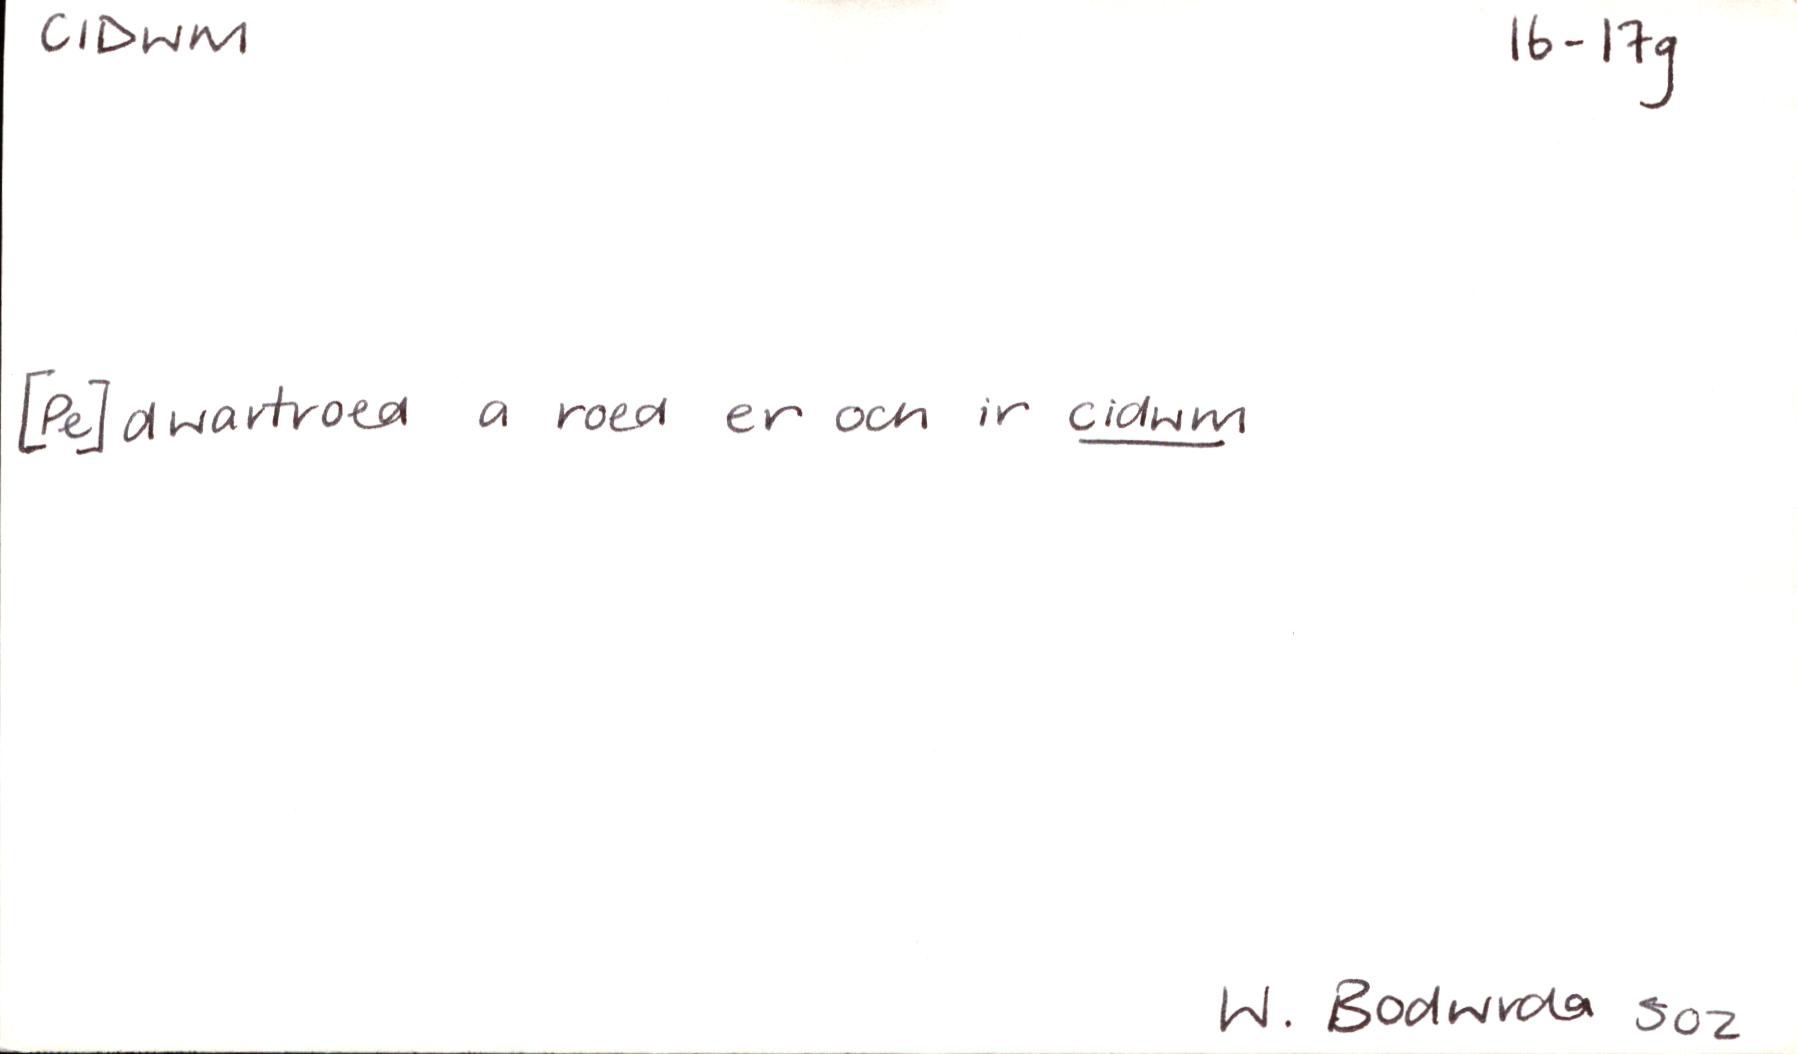 CIDWM
16-17g
[Pe]dwartroed a roed er och ir cidwm
W. Bodwrda 502